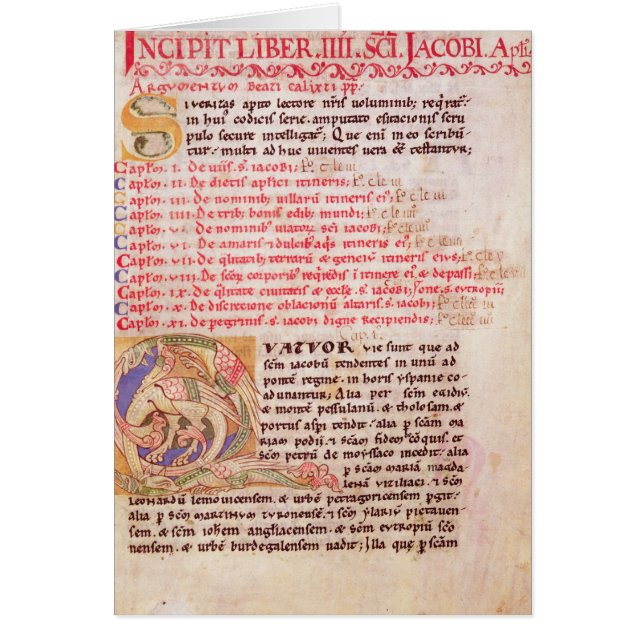 INCIPIT LIBER .IIII. SCĪ. JACOBI. Apłi.
ARGVMENTVM BEATI CALIXTI pp̄.
SI VERITAS apito lectore nr̄is voluminib; reqͥrat᷑.
in huiꝰ codicis serie. amputato esitacionis scru
pulo secure intelligat᷑; Que enī in eo scribūn
tur. multi ad huc viventes vera eē testantur;
Capłm. I. De viis. s̄. iacobi;
Capłm. II. De dietis apłici itineris;
Capłm. III. De nominib; villarū itineris eiꝰ;
Capłm. IIII. De trib; bonis edib; mundi;
Capłm. V. De nominibꝰ viatoꝝ sc̄i iacobi;
Capłm. VI. De amaris & dulcibꝰ aqͥs itineris eiꝰ;
Capłm. VII. De qͣlitatib; terrarū & genciū itineris eius;
Capłm. VIII. De sc̄oꝝ corporibꝰ reqͥrēdis ī itinere eiꝰ. & de passī;
Capłm. IX. De qͣlitate civitatis & eccłe. s̄. iacobi;
Capłm. X. De discretione oblacionū altaris. s̄. iacobi;
Capłm. XI. De peregrinis. s̄. iacobi digne recipiendis;
Cap. I.
QVATVOR vie sunt que ad
sc̄m iacobū tendentes in unū ad
pontē regine. in horis yspanie co
adunantur; Alia per sc̄m egidiū.
& montē pessulanū. & tholosam. &
portus aspi tendit. alia ꝑ sc̄am ma
riam podii. & sc̄am fidem de cōquis. et
sc̄m petrū de moyssaco incedit. alia
ꝑ sc̄am mariā magda
lenā viziliaci. & sc̄m
leonardū lemovicensem. & urbē petragoricensem ꝑgit.
alia ꝑ sc̄m martinum turonensē. & sc̄m ylariū pictaven-
sem. & sc̄m ioħem angliacensem. & sc̄m eutropiū scōo
nensem. & urbē burdegalensem vadit; Illa que ꝑ sc̄am